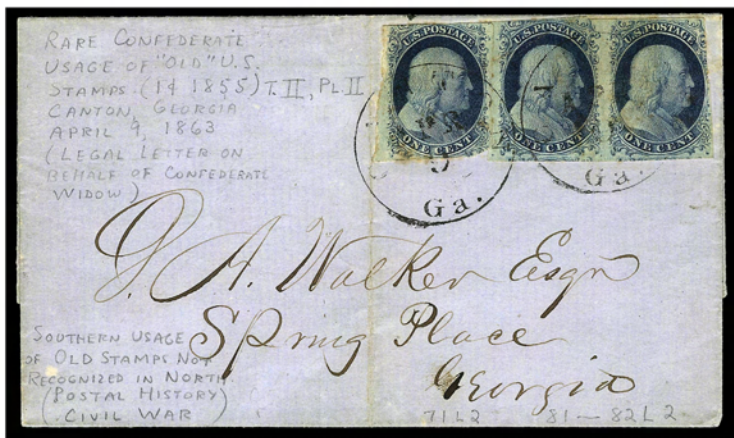 RARE CONFEDERATE
USAGE OF "OLD" U.S.
STAMPS (1¢ 1855) T. II, PL II
CANTON, GEORGIA
APRIL 9, 1863
(LEGAL LETTER ON
BEHALF OF CONFEDERATE
WIDOW)
U.S. POSTAGE
ONE CENT
U.S. POSTAGE
ONE CENT
U.S. POSTAGE
ONE CENT
9
Ga.
Ga.
A. Walker Esqr
Spring Place
Georgia
SOUTHERN USAGE
OF OLD STAMPS NOT
RECOGNIZED IN NORTH.
(POSTAL HISTORY)
CIVIL WAR)
71L2 81–82L2